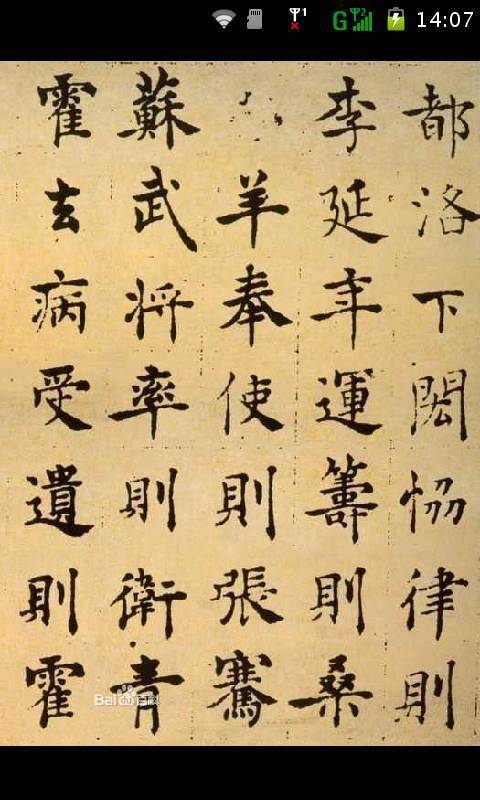 14:07
都洛下閎恊律則
李延年運籌則桑
羊奉使則張騫
蘇武將率則衛青
霍去病受遺則霍
Bai百科